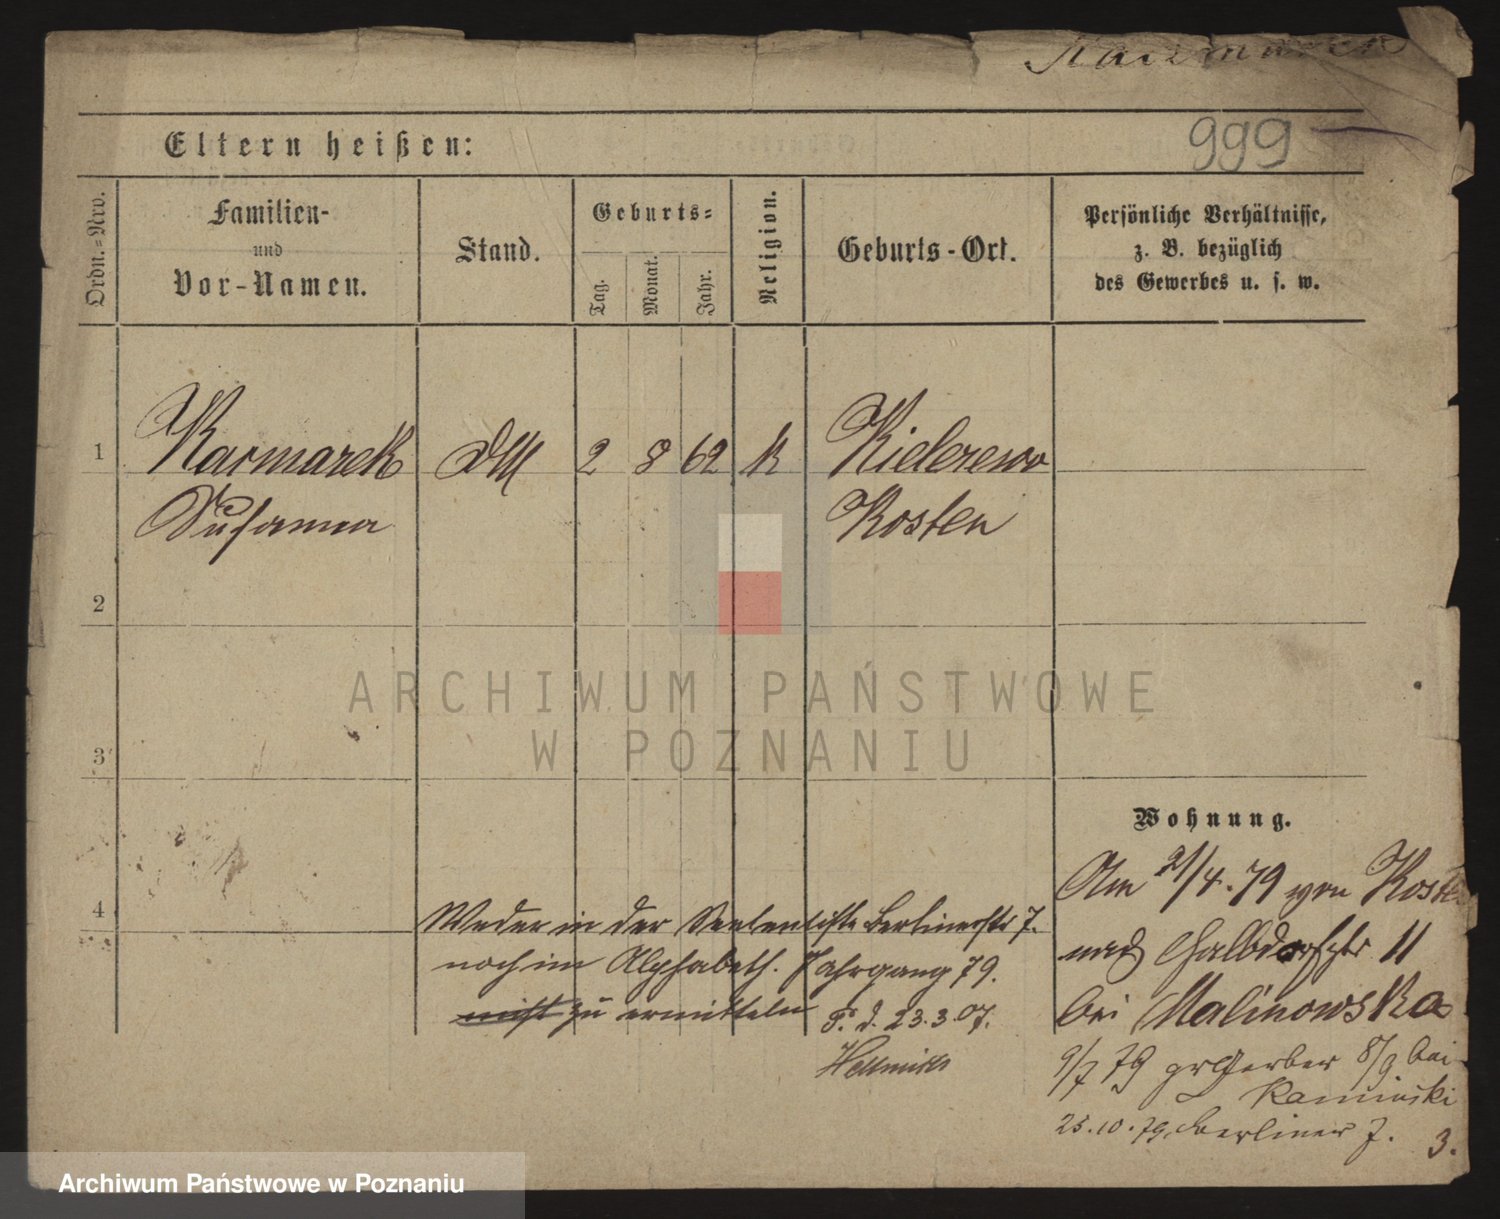 Kaczmarek
999
Eltern heißen:
Ordn.=Nro.
Familien-
und
Vor-Namen.
Stand.
Geburts=
Tag.
Monat.
Jahr.
Religion.
Geburts-Ort.
Persönliche Verhältnisse,
z. B. bezüglich
des Gewerbes u. s. w.
1
Karmarek
Susanna
DM
2
8
62
k
Kielczewo
Kosten
2
3
4
Weder in der Seelenliste Berlinerstr 7.
noch im Alphabeth. Jahrgang 79.
nicht zu ermitteln
P. d. 23.3.07.
Wohnung.
Am 21/4.79 von Kosten
nach Halbdorfstr 11
bei Malinowska
9/7 79 gr Gerber 8/9 bei
Kaminski
25.10.79. Berliner 7.
3.
ARCHIWUM PAŃSTWOWE
W POZNANIU
Archiwum Państwowe w Poznaniu